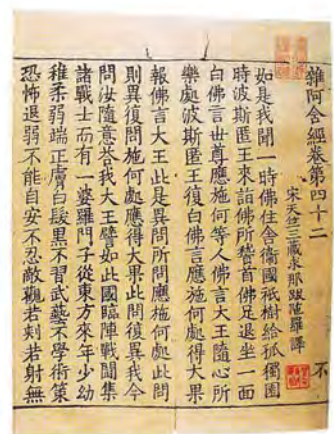 雜阿含經卷第四十二 不
宋天竺三藏求那跋陀羅譯
如是我聞一時佛住舍衛國祇樹給孤獨園
時波斯匿王來詣佛所稽首佛足退坐一面
白佛言世尊應施何等人佛言大王隨心所
樂處波斯匿王復白佛言應施何處得大果
報佛言大王此是異問所問應施何處此問
則異復問施何處應得大果此問復異我今
問汝隨意荅我大王譬如此國臨陣戰鬪集
諸戰士而有一婆羅門子從東方來年少幼
稚柔弱端正膚白髮黑不習武藝不學術策
恐怖退弱不能自安不忍敵觀若刺若射無